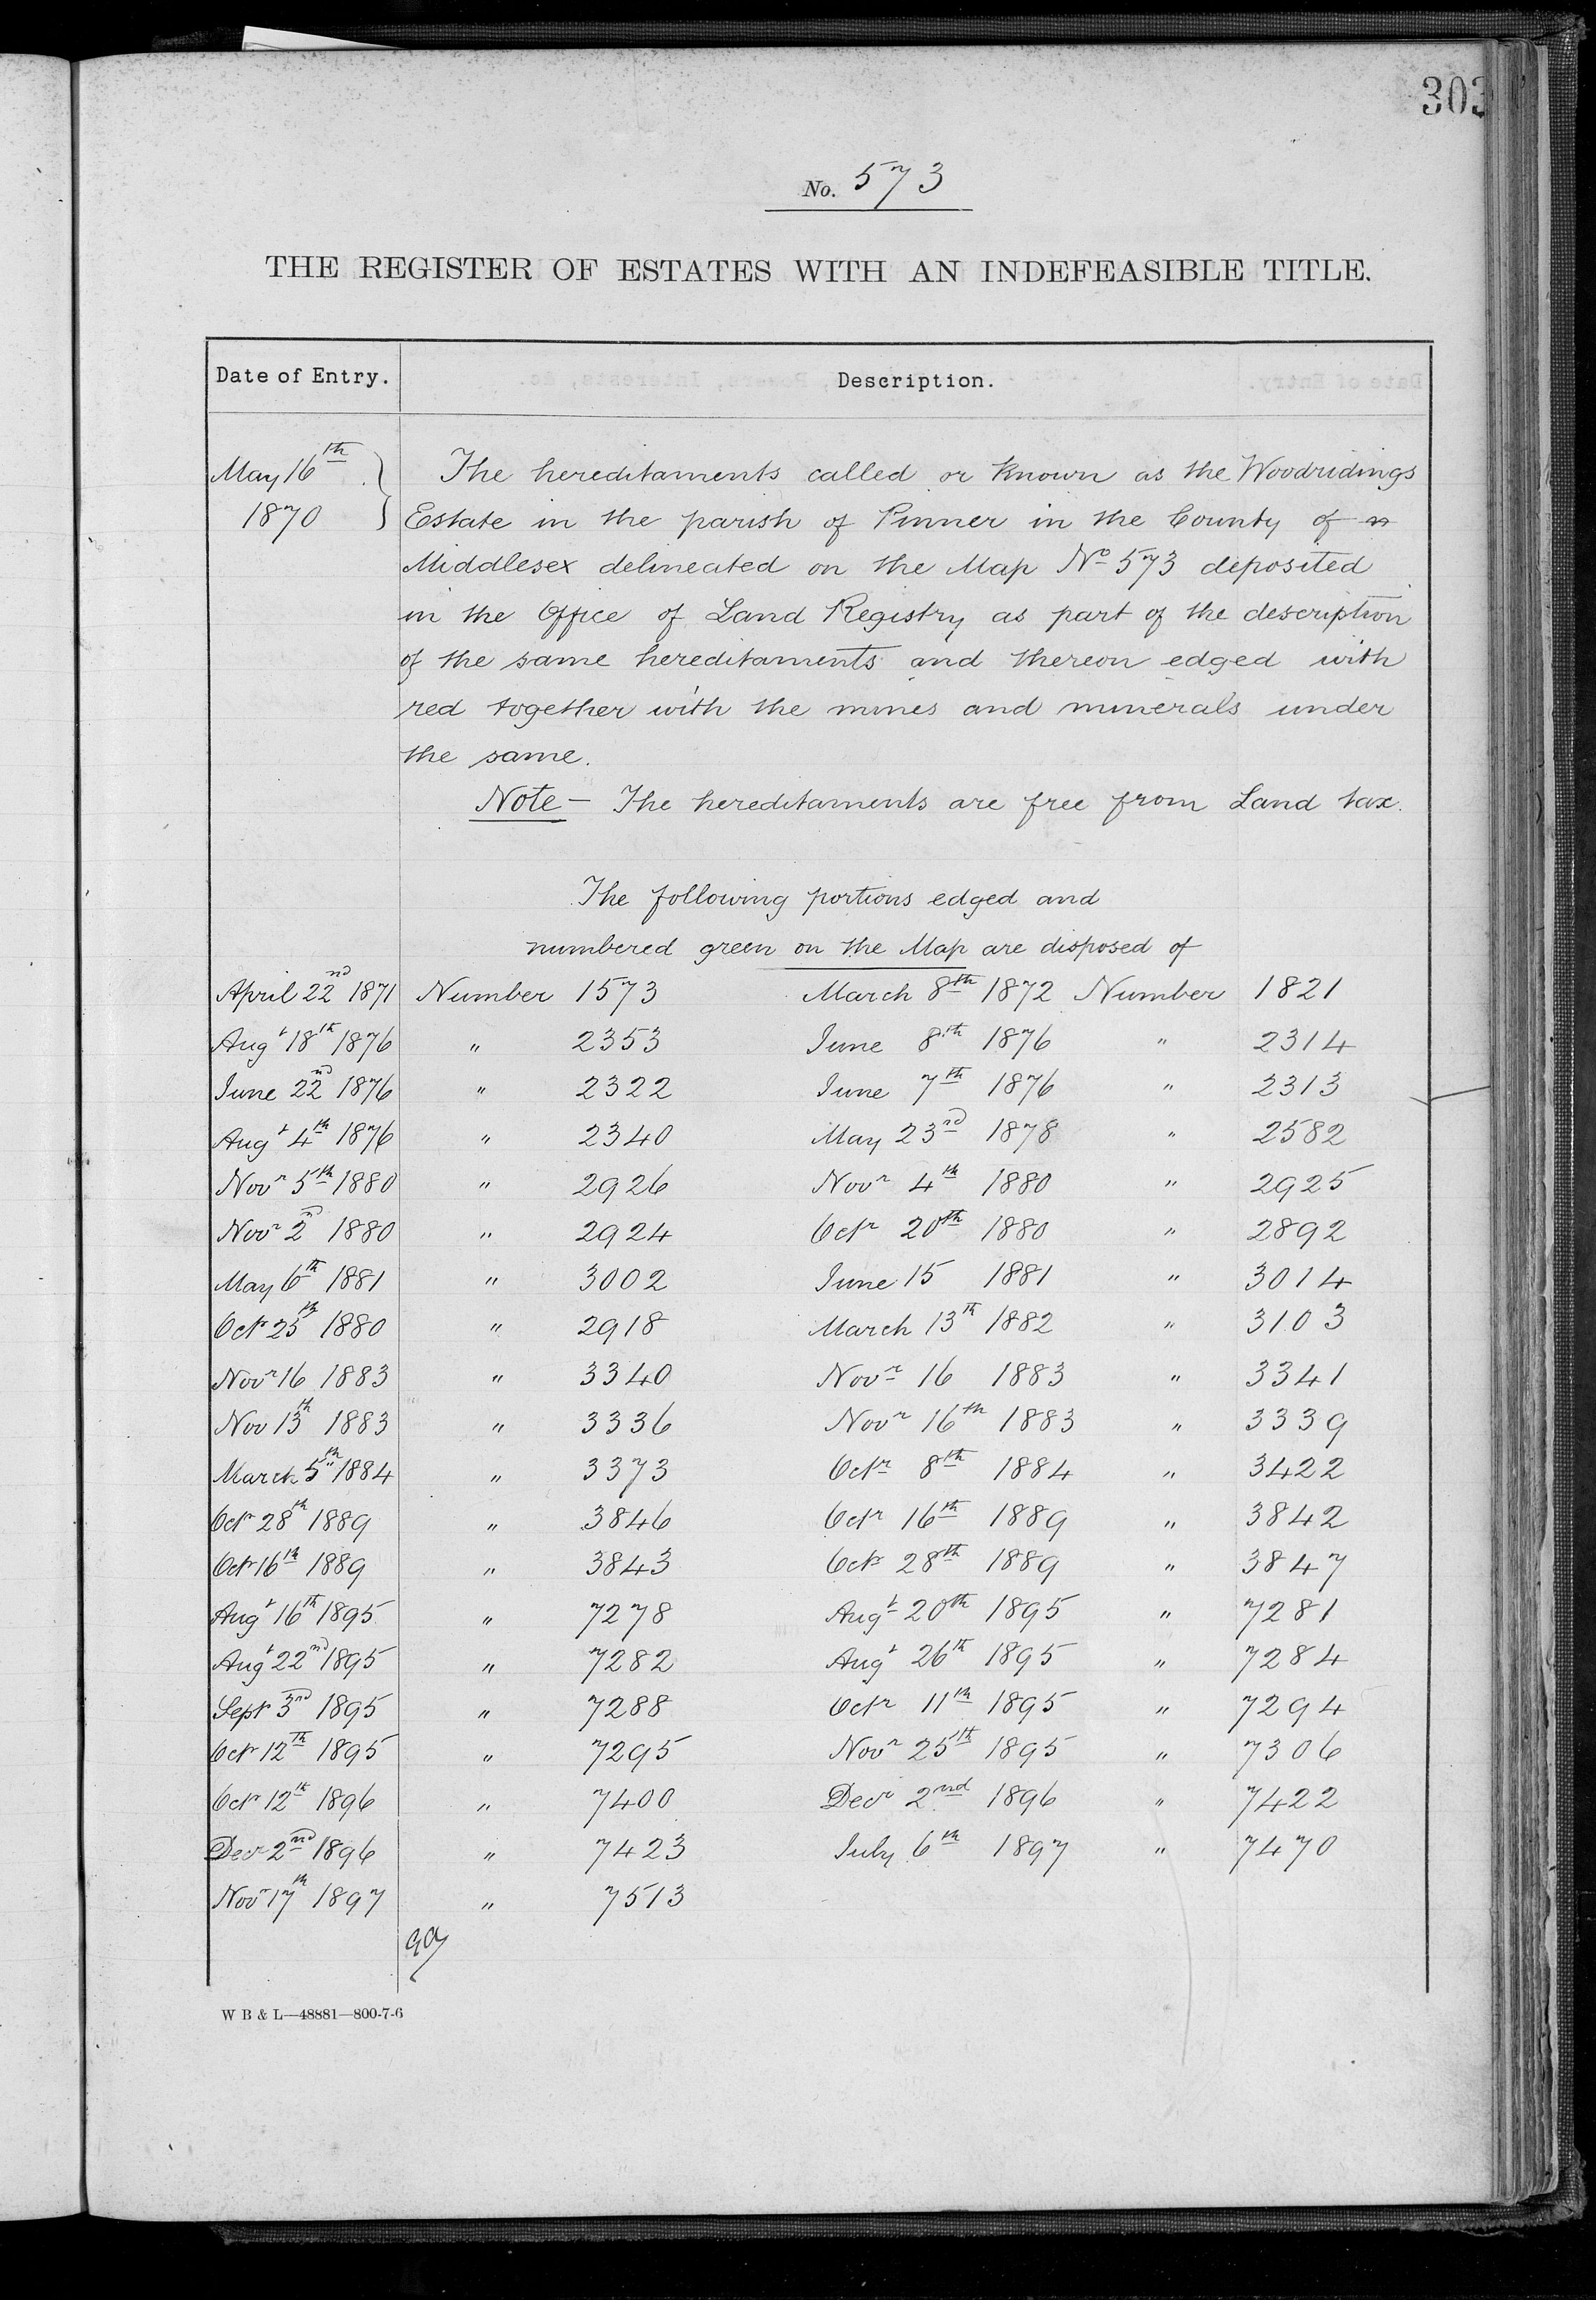 303
No. 573
THE REGISTER OF ESTATES WITH AN INDEFEASIBLE TITLE.
Date of Entry. Description.
May 16th 1870 } The hereditaments called or known as the Woodridings
Estate in the parish of Pinner in the County of
Middlesex delineated on the Map No 573 deposited
in the Office of Land Registry as part of the description
of the same hereditaments and thereon edged with
red together with the mines and minerals under
the same.
Note - The hereditaments are free from Land tax.
The following portions edged and
numbered green on the Map are disposed of
April 22nd 1871 Number 1573 March 8th 1872 Number 1821
Augt 18th 1876 " 2353 June 8th 1876 " 2314
June 22nd 1876 " 2322 June 7th 1876 " 2313
Augt 4th 1876 " 2340 May 23rd 1878 " 2582
Novr 5th 1880 " 2926 Novr 4th 1880 " 2925
Novr 2nd 1880 " 2924 Octr 20th 1880 " 2892
May 6th 1881 " 3002 June 15 1881 " 3014
Octr 25th 1880 " 2918 March 13th 1882 " 3103
Novr 16 1883 " 3340 Novr 16 1883 " 3341
Nov 13th 1883 " 3336 Novr 16th 1883 " 3339
March 5th 1884 " 3373 Octr 8th 1884 " 3422
Octr 28th 1889 " 3846 Octr 16th 1889 " 3842
Octr 16th 1889 " 3843 Octr 28th 1889 " 3847
Augt 16th 1895 " 7278 Augt 20th 1895 " 7281
Augt 22nd 1895 " 7282 Augt 26th 1895 " 7284
Sept 3rd 1895 " 7288 Octr 11th 1895 " 7294
Octr 12th 1895 " 7295 Novr 25th 1895 " 7306
Octr 12th 1896 " 7400 Decr 2nd 1896 " 7422
Decr 2nd 1896 " 7423 July 6th 1897 " 7470
Novr 17th 1897 " 7513
W B & L—48881—800-7-6